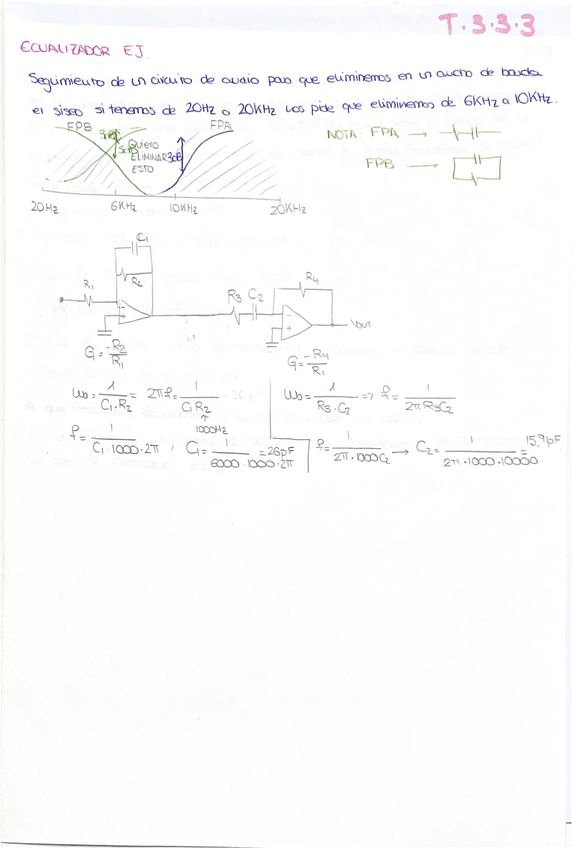 T.3.3.3
ECUALIZADOR EJ.
Seguimiento de un circuito de audio para que eliminemos en un ancho de banda
el siseo si tenemos de 20Hz a 20KHz nos pide que eliminemos de 6KHz a 10KHz.
FPB FPA
Quiero
ELIMINAR 3dB
ESTO
20Hz 6KHz 10KHz 20KHz
NOTA: FPA →
FPB →
C1
R2
R1
R3 C2
R4
Vout
G = -R2/R1
G = -R4/R1
Wo = 1/C1·R2 = 2πf = 1/C1R2
1000Hz
f = 1/C1·1000·2π , C1 = 1/6000·1000·2π = 26pF
Wo = 1/R3·C2 => f = 1/2πR3C2
f = 1/2π·1000C2 → C2 = 1/2π·1000·10000 = 15,91pF